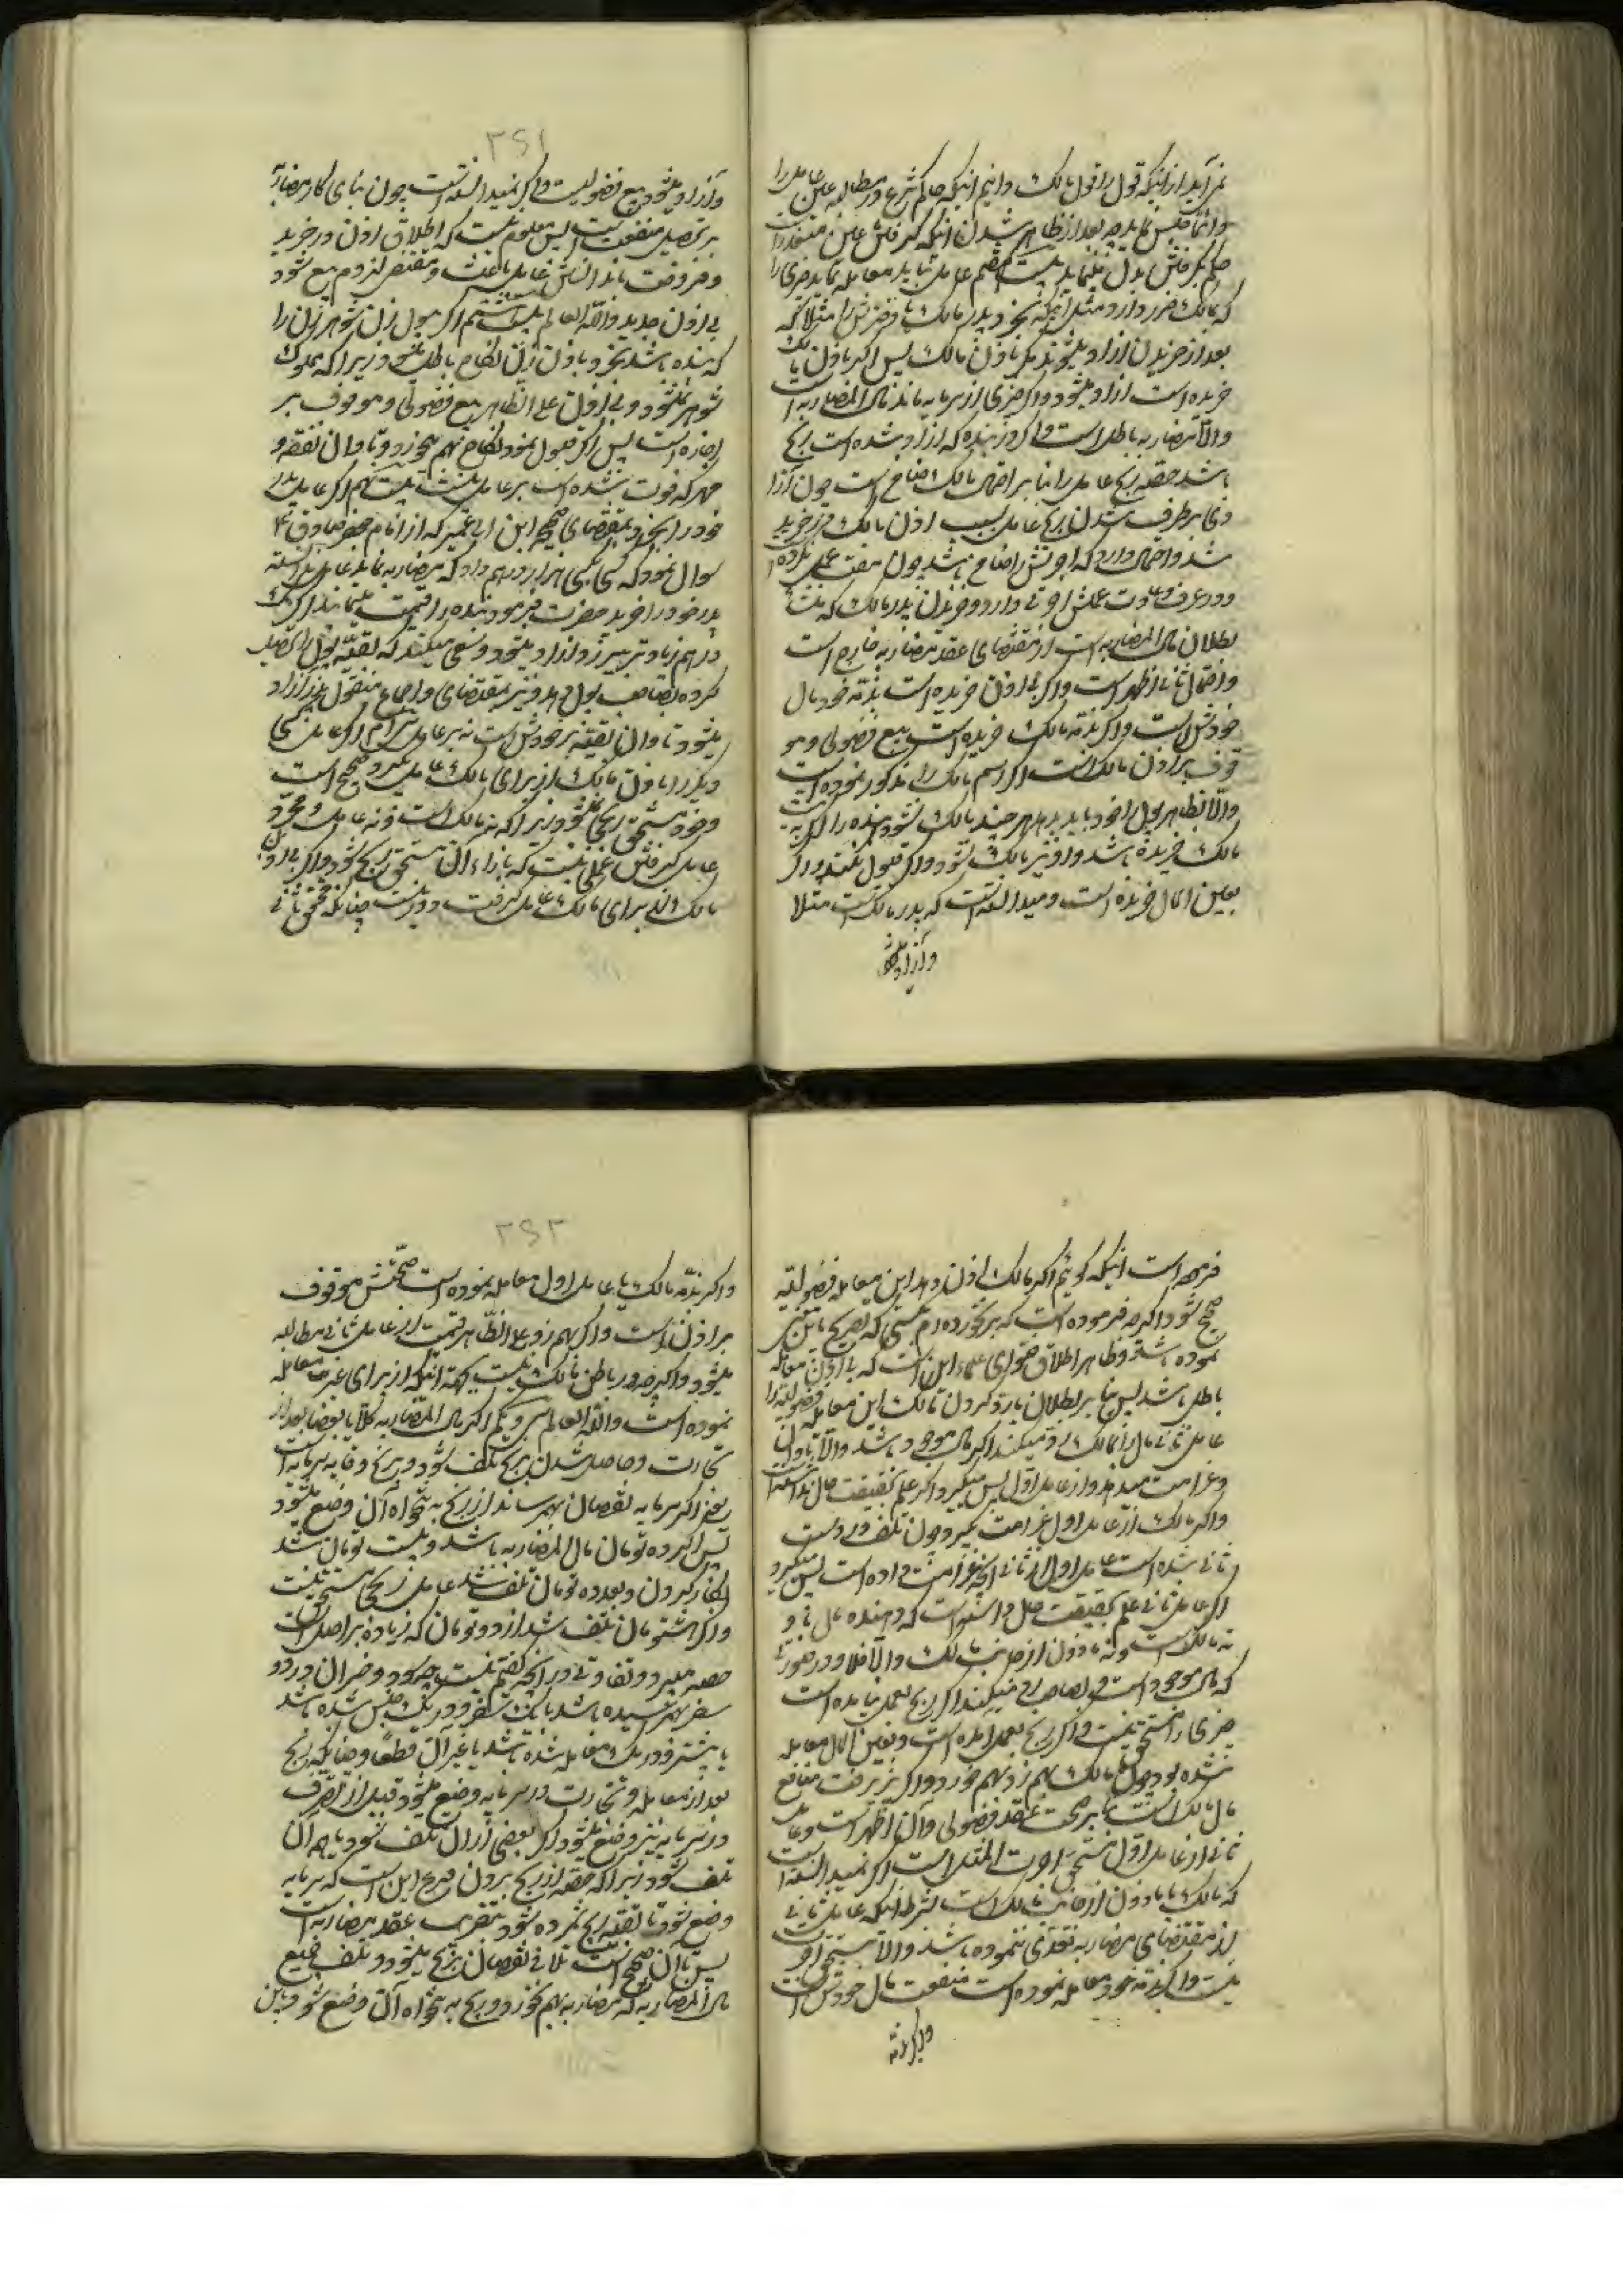 نمی‌آید از اینکه قول را قول مالک دانیم اینکه حاکم شرع در مطالبه عین عامل را
حکم بگرفتن بدل مینماید بیست هفتم عامل نباید معامله نماید چیزی را
که مالک ضرر دارد مثل اینکه نخرد پدر مالک یا فرزندش را مثلا که
بعد از خریدن آزاد میشود مگر باذن مالک پس اگر باذن مالک
خریده است آزاد میشود و اگر چیزی از سرمایه ماند مال المضاربه است
والا مضاربه باطل است و اگر در بنده که آزاد شده است ربح
باشد حصه ربح عامل را بنا بر احتمالی مالک ضامن است چون آزاد
و برطرف شدن ربح عامل بسبب اذن مالک در خرید
شد و احتمال دارد که اجرتش را ضامن باشد چون عملی کرده
و در عرف و عادت عملش اجرتی دارد و خریدن پدر مالک که
بطلان مال المضاربه است از مقتضای عقد مضاربه خارج است
و احتمال ثانی اظهر است و اگر بی اذن خریده است بذمه خود مال
خودش است و اگر بذمه مالک خریده است بیع فضولی و مو
قوف بر اذن مالک است اگر اسم مالک را مذکور نموده است
والا بظاهر پول را خود باید بدهد هر چند مالک نشود بنده را اگر به
مالک خریده باشد و او نیز مالک نشود و اگر قبول نکند و اگر
بعین المال خریده است و میدانسته است که پدر مالک است مثلا
وآزاد میشود
۳۶۱
وآزاد میشود بیع فضولیست و اگر نمیدانسته است چون بنای کار مضاربه
بر تحصیل منفعت است پس معلوم نیست که اطلاق اذن در خرید
و فروخت باشد
بی اذن جدید والله العالم بیست هشتم اگر بپول زن شوهر زن را
که بنده باشد بخرد باذن زن نکاح باطل میشود زیرا که مملوک
شوهر نمیشود و بی اذن علی الظاهر بیع فضولی و موقوف بر
اجازه است پس اگر قبول نمود نکاح بهم میخورد و تاوان نفقه و
مهر که فوت شده است بر عامل نیست بیست نهم اگر عامل پدر
خود را بخرد بمقتضای صحیح ابن ابی عمیر که از امام جعفر صادق ع
سوال نمود که کسی بکسی هزار درهم داد که مضاربه نماید عامل ندانسته
پدر خود را خرید حضرت فرمود بنده را قیمت مینمایند اگر یک
درهم زیادتر بیرزد آزاد میشود و سعی میکند که بقیه پول را تحصیل
کرده بصاحب پول دهد و نیز بمقتضای اجماع منقول پدر آزاد
میشود تاوان بقیه بر خودش است نه بر عامل سی‌ام اگر عامل کسی
دیگر را باذن مالک از برای مالک عامل گیرد صحیح است
و خود مستحق ربحی نمیشود زیرا که نه مالک است و نه عامل و مجرد
عامل گرفتن عملی نیست که بازاء آن مستحق ربح شود و اگر بی اذن
مالک از برای مالک عامل گرفت درست چنانکه محقق ثانی
فرموده است اینکه گوئیم اگر مالک اذن دهد این معامله فضولیه
صحیح شود اگر چه فرموده است که برنخورده‌ام بکسی که تصریح باین
نموده باشد و ظاهر اطلاق فتوای علماء این است که بی اذن معامله
باطل باشد پس بنا بر بطلان یا رد کردن مالک این معامله فضولیه را
عامل ثانی مال را بمالک رد میکند اگر مال موجود باشد والا تاوان
و غرامت میدهد و از عامل اول پس میگیرد اگر علم بحقیقت حال نداشته است
و اگر مالک از عامل اول غرامت گیرد چون تلف در دست
ثانی شده است عامل اول از ثانی آنچه غرامت داده است پس میگیرد
اگر عامل ثانی علم بحقیقت حال داشته است که دهنده مال
نه مالک است و نه ماذون از جانب مالک والا فلا و در صورتی
که مال موجود است و بصاحب رد میکند اگر ربح بعمل نیامده است
چیزی را مستحق نیست و اگر ربح بعمل آمده است و بعین المال معامله
نشده بود
مال مالک است بنا بر صحت عقد فضولی و آن اظهر است و عامل
ثانی از عامل اول مستحق اجرت المثل است اگر نمیدانسته است
که مالک یا ماذون از جانب مالک است بشرط اینکه عامل ثانی
از مقتضای مضاربه تعدی ننموده باشد والا مستحق اجر
نیست و اگر بذمه خود معامله نموده است منفعت مال خودش است
واگر بذمه
۳۶۲
واگر بذمه مالک یا عامل اول معامله نموده است صحتش موقوف
بر اذن است و اگر بهم زد علی الظاهر قیمت از عامل ثانی مطالبه
میشود و اگر چه در باطن مالک نیست بجهة اینکه از برای غیر معامله
نموده است والله العالم سی و یکم اگر مال المضاربه کلا یا بعضا بعد از
تجارت و حاصل شدن ربح تلف شود ربح وقایه سرمایه است
یعنی اگر سرمایه نقصان بهم رساند از ربح به تنخواه آن وضع میشود
پس اگر ده تومان مال المضاربه باشد و بیست تومان شد
بکار کردن و بعد ده تومان تلف شد عامل ربحی مستحق نیست
و اگر هشتومان تلف شد از دو تومان که زیاده بر اصل است
حصه میبرد و تفاوتی در آنچه گفتم نیست چه سود و خسران در دو
سفر بهم رسیده باشد یا یک سفر و در یک جنس شده باشد
یا بیشتر و در یک معامله شده باشد یا غیر آن قطعا و چنانکه ربح
بعد از معامله و تجارت در سرمایه وضع میشود قبل از تصرف
در سرمایه نیز وضع میشود اگر بعضی از آن تلف شود یا همه آن
تلف شود زیرا که حصه از ربح بردن فرع این است که سرمایه
وضع شود تا بقیه ربح شمرده شود
پس تا آن صحیح است تلافی نقصان بربح میشود و بتلف جمیع
مال المضاربه مضاربه بهم نخورد و ربح به تنخواه آن وضع شود